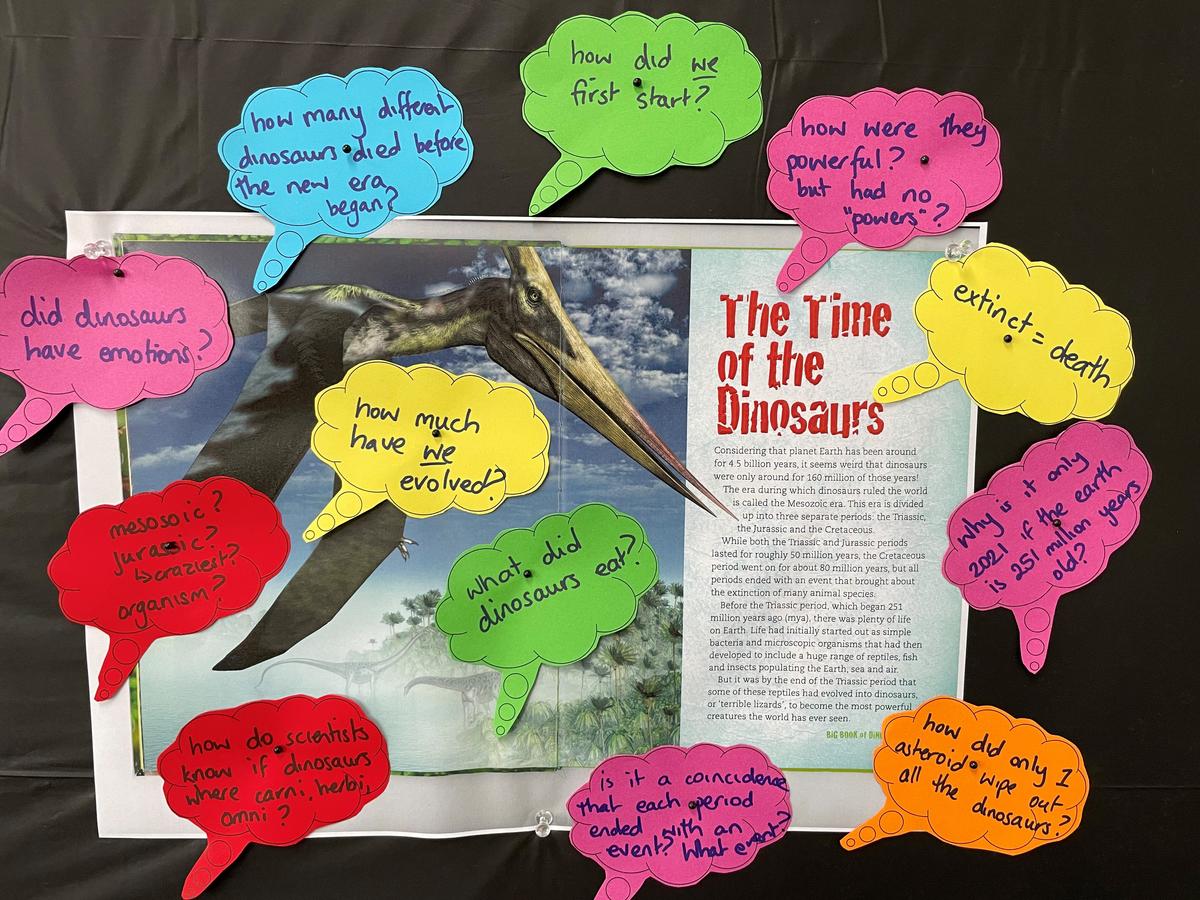 how did we
first start?
how many different
dinosaurs died before
the new era
began?
how were they
powerful?
but had no
"powers"?
did dinosaurs
have emotions?
extinct = death
how much
have we
evolved?
The Time
of the
Dinosaurs
Considering that planet Earth has been around
for 4.5 billion years, it seems weird that dinosaurs
were only around for 160 million of those years!
The era during which dinosaurs ruled the world
is called the Mesozoic era. This era is divided
up into three separate periods: the Triassic,
the Jurassic and the Cretaceous.
While both the Triassic and Jurassic periods
lasted for roughly 50 million years, the Cretaceous
period went on for about 80 million years, but all
periods ended with an event that brought about
the extinction of many animal species.
Before the Triassic period, which began 251
million years ago (mya), there was plenty of life
on Earth. Life had initially started out as simple
bacteria and microscopic organisms that had then
developed to include a huge range of reptiles, fish
and insects populating the Earth, sea and air.
But it was by the end of the Triassic period that
some of these reptiles had evolved into dinosaurs,
or 'terrible lizards', to become the most powerful
creatures the world has ever seen.
BIG BOOK of
Why is it only
2021 if the earth
is 251 million years
old?
mesosoic?
jurassic?
↳craziest?
organism?
what did
dinosaurs eat?
how do scientists
know if dinosaurs
where carni, herbi,
omni?
is it a coincidence
that each period
ended with an
event? What event?
how did only 1
asteroid wipe out
all the dinosaurs?